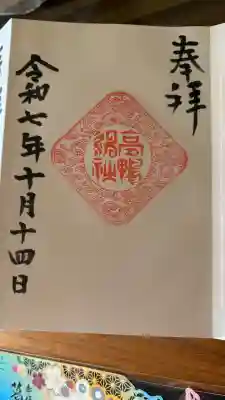 奉拝
高鴨
神社
令和七年十月十四日